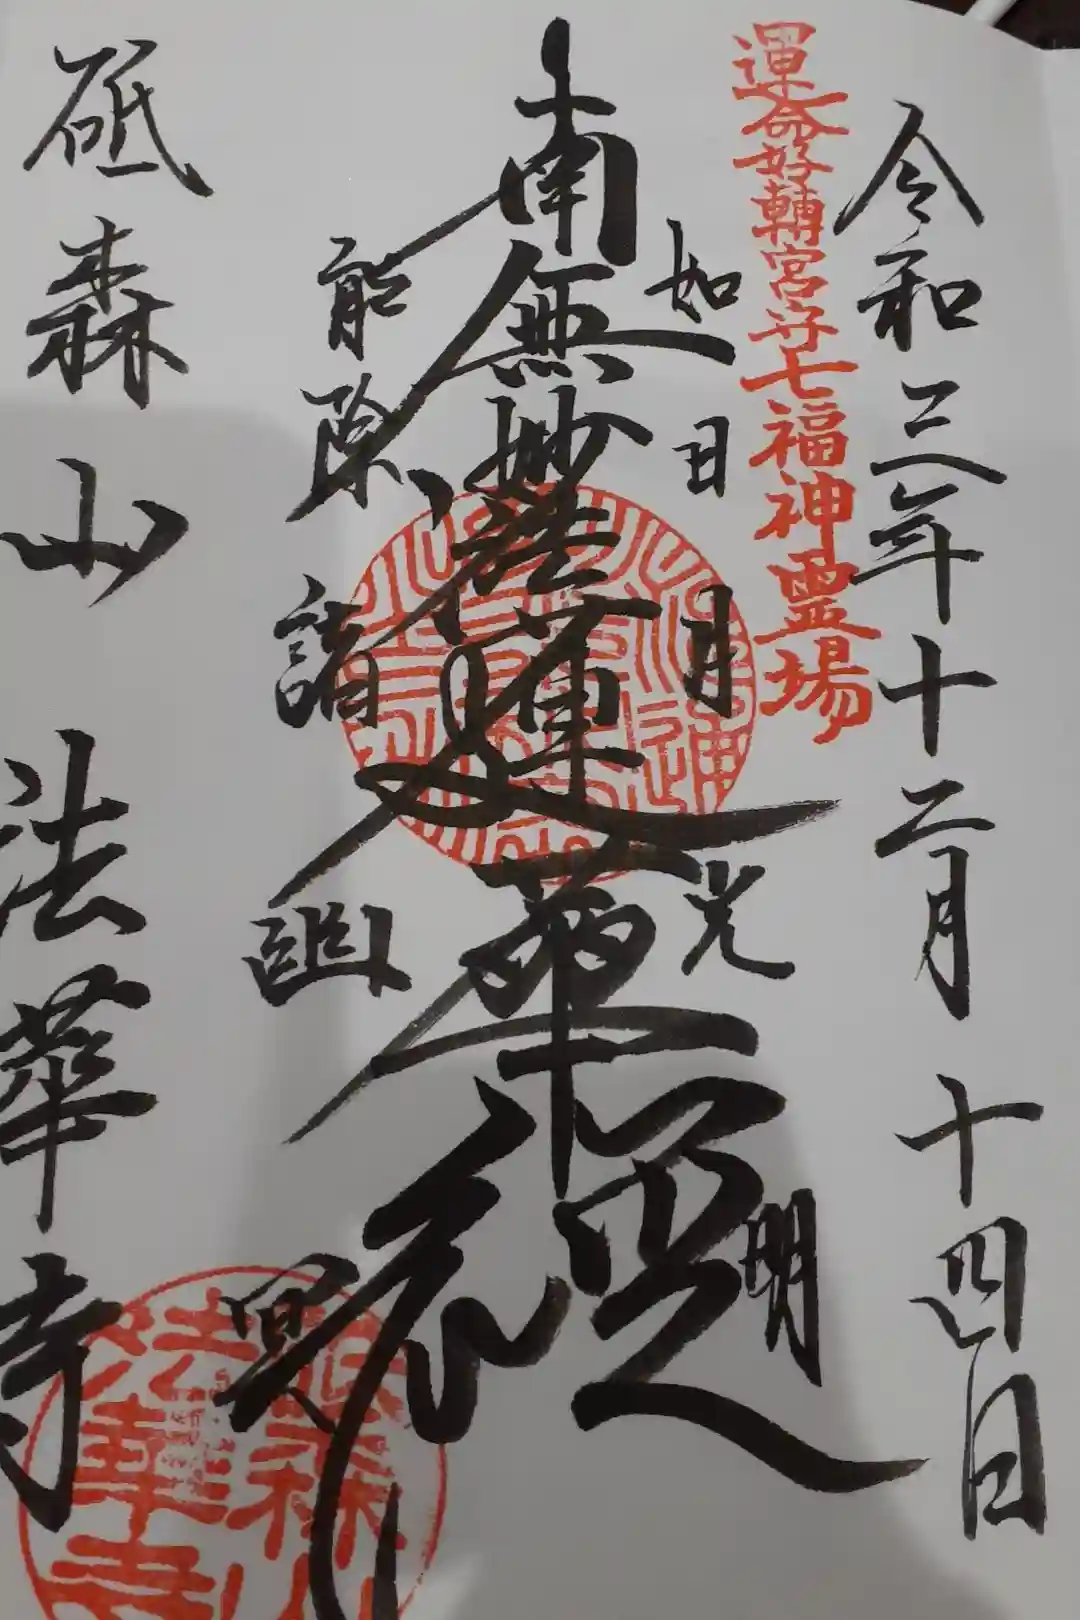 令和三年十二月十四日
運命好轉宮守七福神霊場
如日月光明
南無妙法蓮華経
能除諸幽冥
砥森山 法華寺
砥森山
法華寺